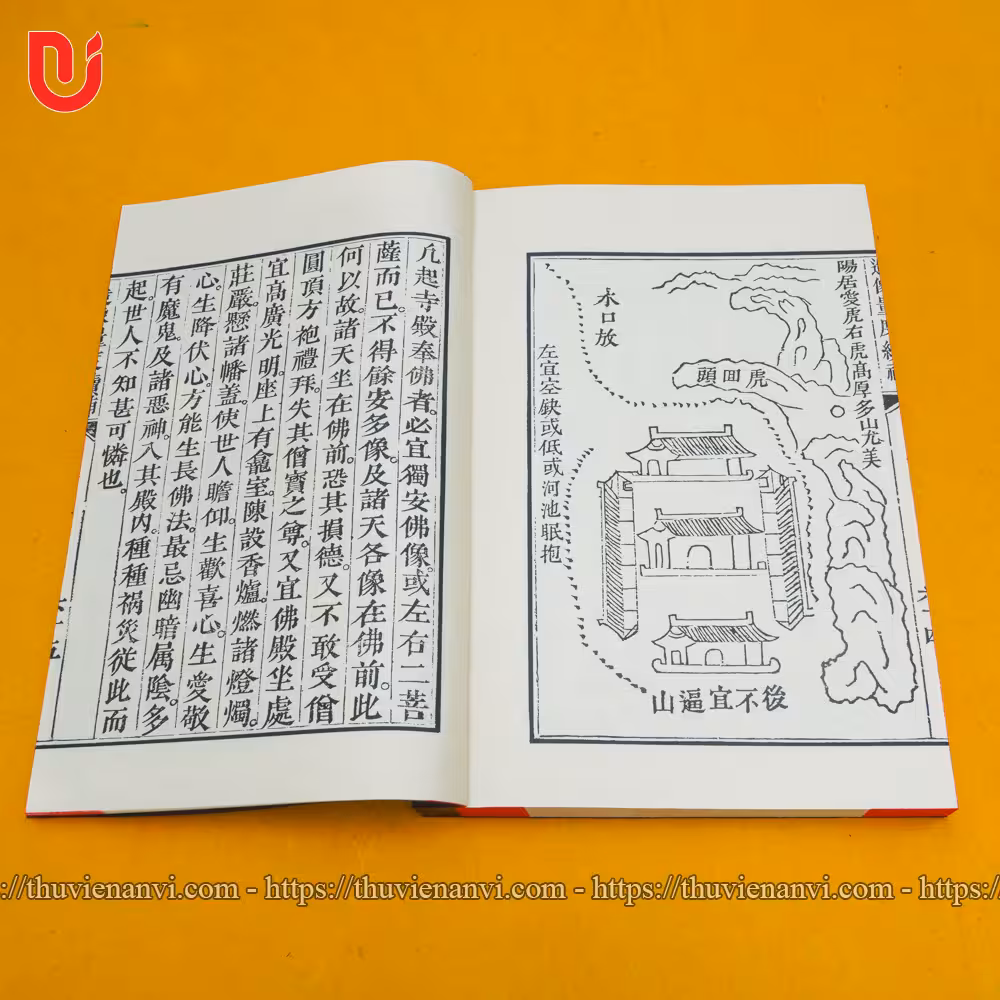 陽居愛虎右虎高厚多山尤美
虎囬頭
水口放
左宜空缺或低或河池眠抱
後不宜逼山
凢起寺殿奉佛者。必宜獨安佛像。或左右二菩
薩而已。不得餘安多像。及諸天各像在佛前。此
何以故。諸天坐在佛前。恐其損德。又不敢受僧
圓頂方袍禮拜。失其僧寶之尊。又宜佛殿坐處
宜高廣光明。座上有龕室。陳設香爐。燃諸燈燭。
莊嚴。懸諸幡蓋。使世人瞻仰。生歡喜心。生愛敬
心。生降伏心。方能生長佛法。最忌幽暗属陰。多
有魔鬼。及諸惡神。入其殿内。種種祸災從此而
起。世人不知。甚可憐也。
://thuvienanvi.com - https://thuvienanvi.com - https://thuvienanvi.com - https://